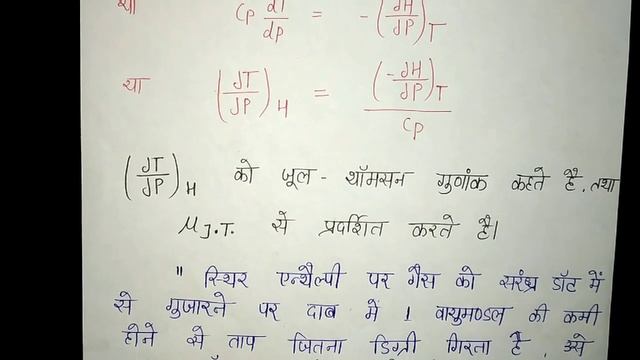 या Cp dT/dP = -(∂H/∂P)T
या (∂T/∂P)H = (-∂H/∂P)T / Cp
(∂T/∂P)H को जूल - थॉमसन गुणांक कहते है. तथा
μJ.T. से प्रदर्शित करते है।
" स्थिर एन्थैल्पी पर गैस को सरंध्र डॉट में
से गुजारने पर दाब में 1 वायुमण्डल की कमी
होने से ताप जितना डिग्री गिरता है उसे